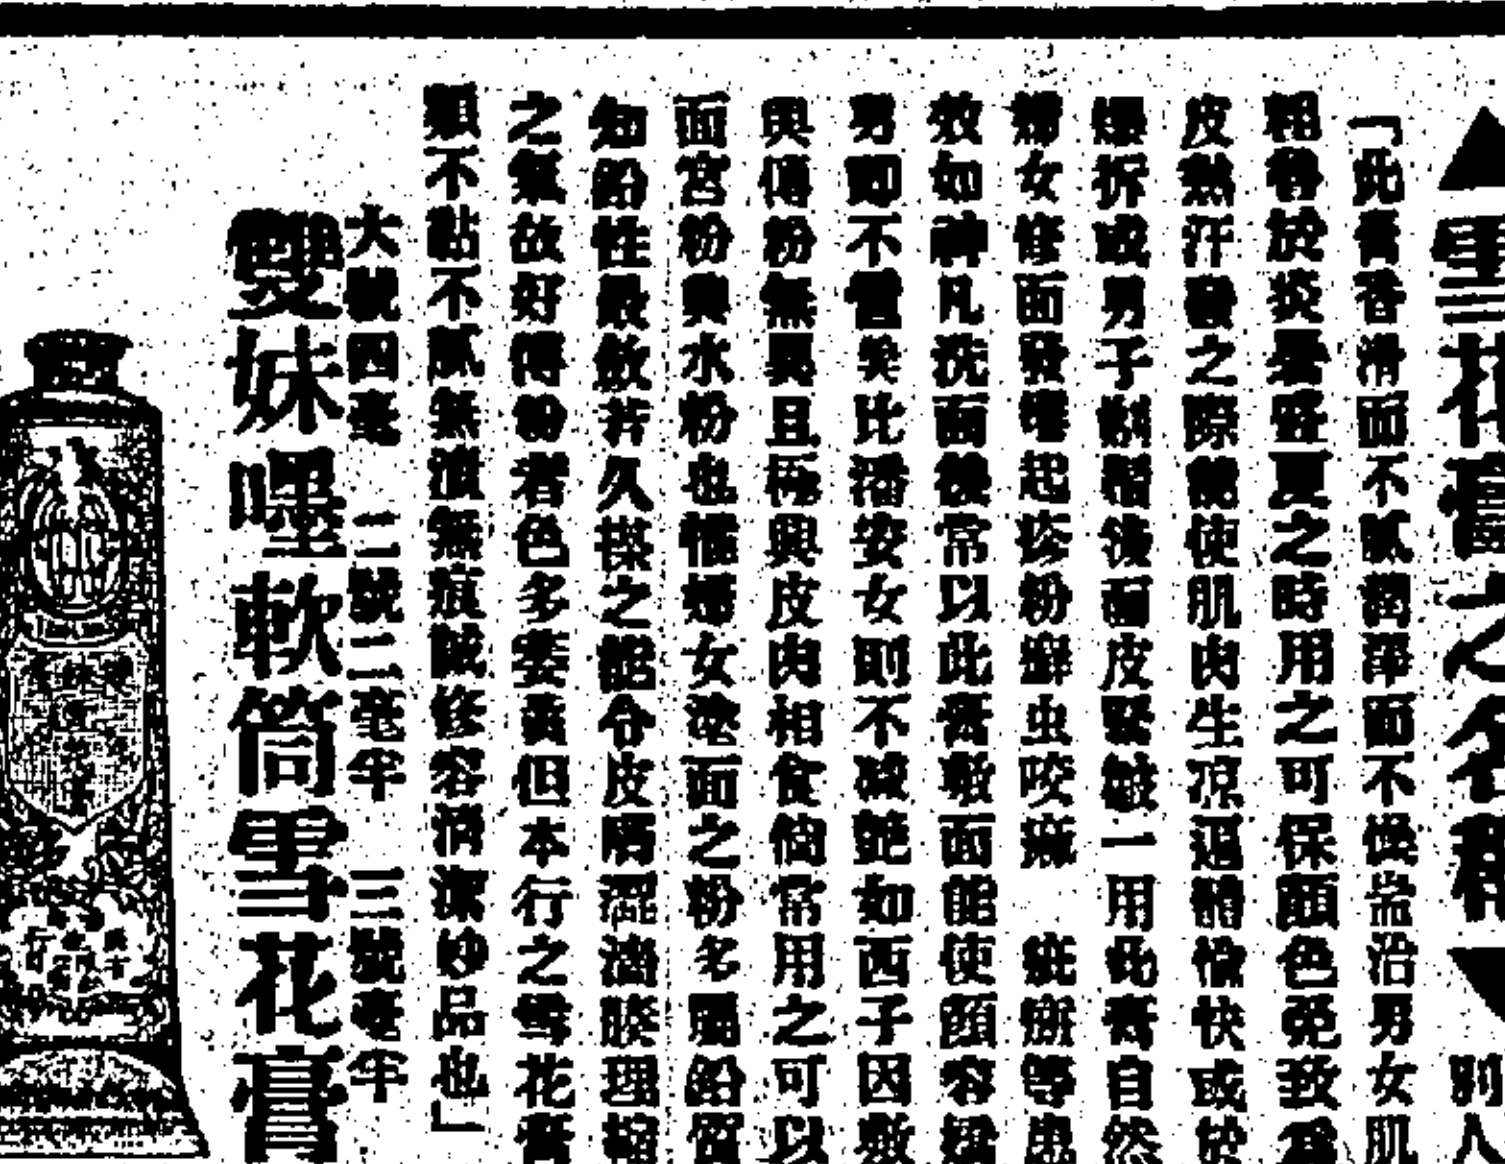 ▲雪花膏之名稱▼ 別人
「此膏香滑而不膩潤澤而不燥耑治男女肌
粗唇於炎暑盛夏之時用之可保顏色免致為
皮熱汗發之際能使肌肉生涼遍體愉快或於
爆拆或男子剃鬚後面皮緊皺一用此膏自然
婦女修面發埋起疹粉癬虫咬麻 疵癬等患
效如神凡洗面後常以此膏敷面能使顏容嬌
男即不啻美比潘安女則不减艷如西子因敷
與傅粉無異且極與皮肉相食倘常用之可以
面宮粉與水粉也惟婦女塗面之粉多屬鉛質
知鉛性最斂若久搽之能令皮膚澀滯腠理縮
之氣故好得粉者色多萎黃但本行之雪花膏
類不黏不膩無漬無痕誠修容消潔妙品也」
大號四毫 二號二毫半 三號毫半
雙妹嘿軟筒雪花膏